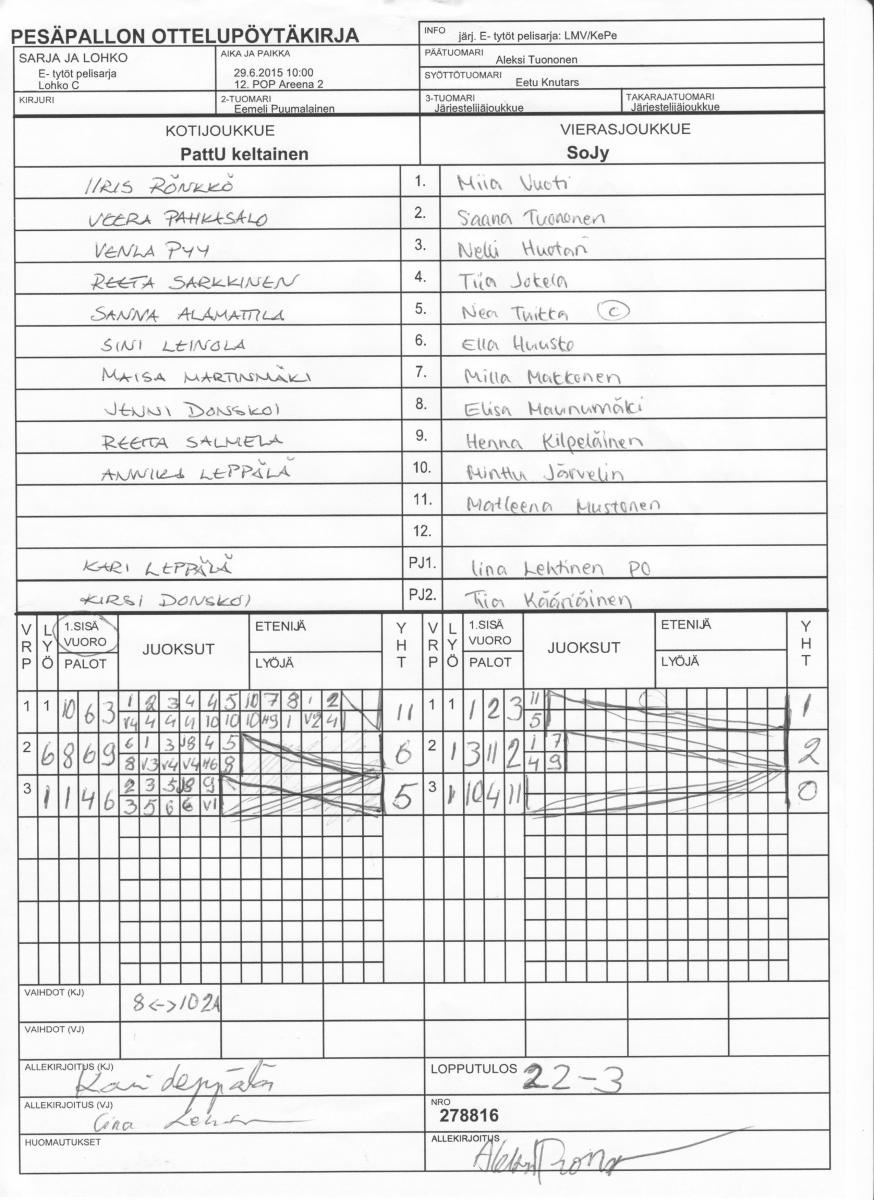 PESÄPALLON OTTELUPÖYTÄKIRJA
INFO järj. E- tytöt pelisarja: LMV/KePe
SARJA JA LOHKO
E- tytöt pelisarja
Lohko C
AIKA JA PAIKKA
29.6.2015 10:00
12. POP Areena 2
PÄÄTUOMARI Aleksi Tuononen
SYÖTTÖTUOMARI Eetu Knutars
KIRJURI
2-TUOMARI
Eemeli Puumalainen
3-TUOMARI
Järjestelijäjoukkue
TAKARAJATUOMARI
Järjestelijäjoukkue
KOTIJOUKKUE VIERASJOUKKUE
PattU keltainen SoJy
IIRIS RÖNKKÖ 1. Miia Vuoti
VEERA PAHKASALO 2. Saana Tuononen
VENLA PYY 3. Nelli Huotari
REETA SARKKINEN 4. Tiia Jokela
SANNA ALAMATTILA 5. Nea Tuitta C
SINI LEINOLA 6. Ella Huusto
MAISA MARTINMÄKI 7. Milla Matkonen
JENNI DONSKOI 8. Elisa Maunumäki
REETTA SALMELA 9. Henna Kilpeläinen
ANNIKA LEPPÄLÄ 10. Minttu Järvelin
11. Matleena Mustonen
12.
KARI LEPPÄLÄ PJ1. Iina Lehtinen PO
KIRSI DONSKOI PJ2. Tiia Kääriäinen
VRP LYÖ 1.SISÄ VUORO PALOT JUOKSUT ETENIJÄ LYÖJÄ YHT VRP LYÖ 1.SISÄ VUORO PALOT JUOKSUT ETENIJÄ LYÖJÄ YHT
1 1 10 6 3 1 2 3 4 4 5 10 7 8 1 2 11 1 1 1 2 3 11 1
V4 4 4 4 10 10 10 H9 1 V2 4 5
2 6 8 6 9 6 1 3 J8 4 5 6 2 1 3 11 2 1 7 2
8 V3 V4 V4 H6 8 4 9
3 1 1 4 6 2 3 5 J8 9 5 3 1 10 4 11 0
3 5 6 6 V1
VAIHDOT (KJ) 8<->10 2A
VAIHDOT (VJ)
ALLEKIRJOITUS (KJ) Kari Leppälä
LOPPUTULOS 22-3
ALLEKIRJOITUS (VJ)
NRO
278816
HUOMAUTUKSET
ALLEKIRJOITUS